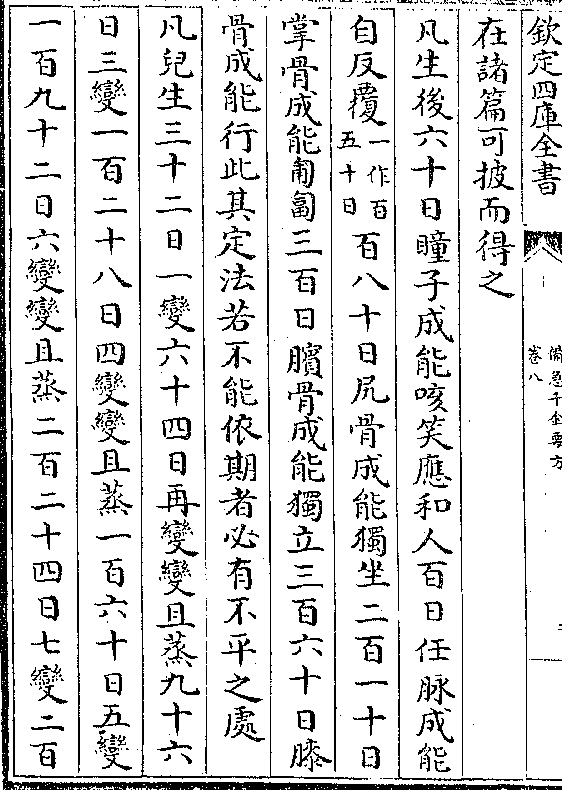 欽定四庫全書
備急千金要方
卷八
在諸篇可披而得之
凡生後六十日瞳子成能咳笑應和人百日任脉成能
自反覆一作百五十日百八十日尻骨成能獨坐二百一十日
掌骨成能匍匐三百日臏骨成能獨立三百六十日膝
骨成能行此其定法若不能依期者必有不平之處
凡兒生三十二日一變六十四日再變變且蒸九十六
日三變一百二十八日四變變且蒸一百六十日五變
一百九十二日六變變且蒸二百二十四日七變二百